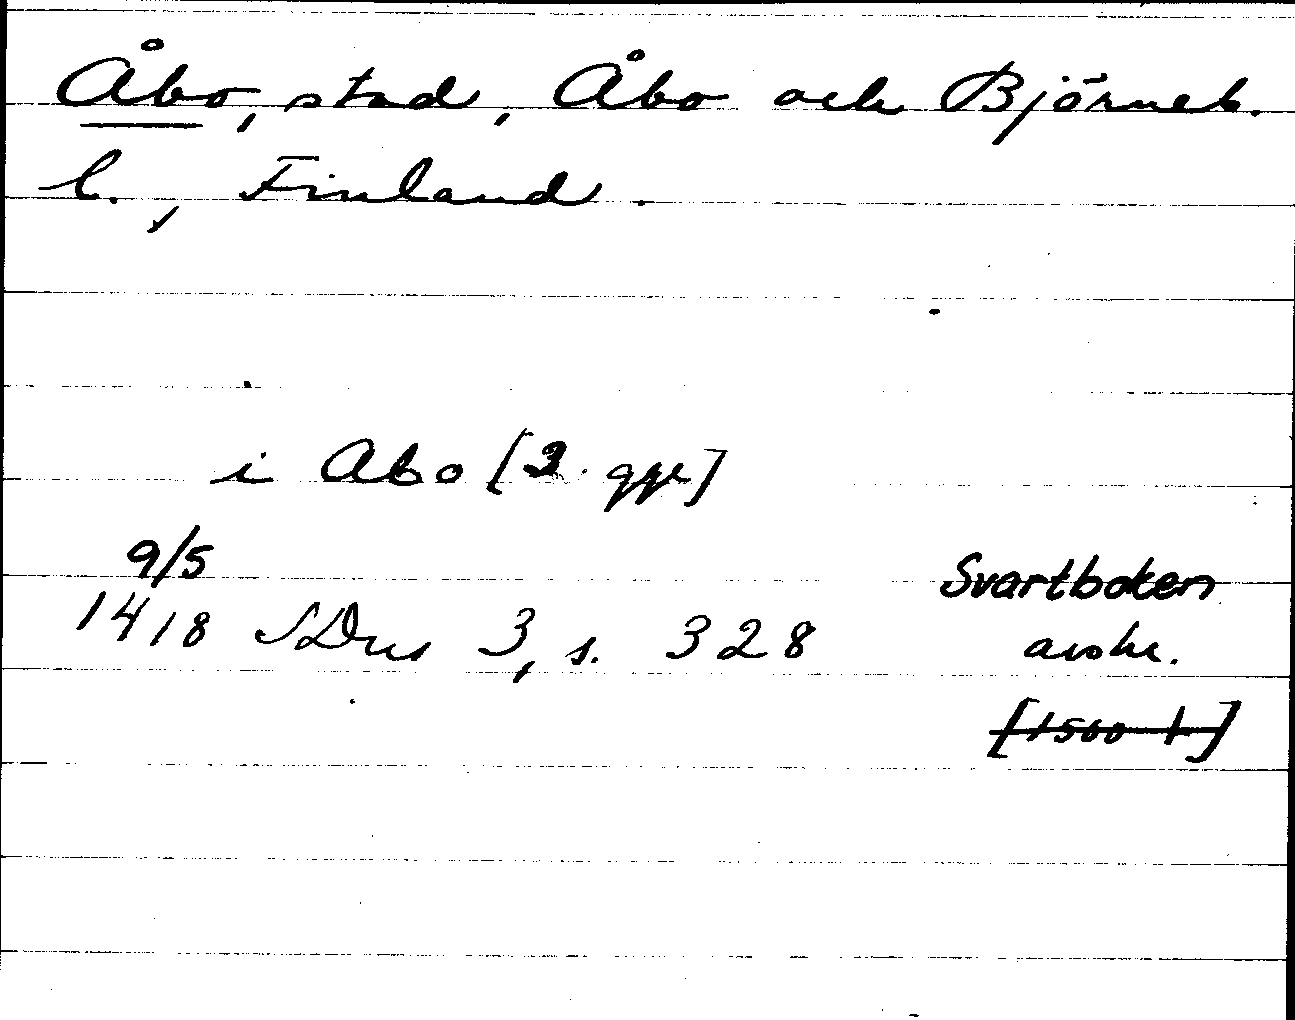 Åbo, stad, Åbo och Björneb.
l., Finland.
i Abo [3 ggr]
9/5
1418 SDns 3, s. 328
Svartboken
avskr.
[1500 t]